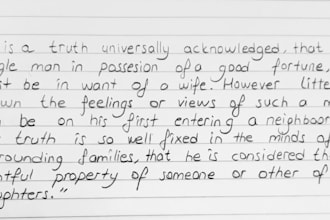 is a truth universally acknowledged, that
gle man in possesion of a good fortune,
st be in want of a wife. However litte
wn the feelings or views of such a m
be on his first entering a neighboor
truth is so well fixed in the minds of
rounding families, that he is considered th
htful property of someone or other of
ughters."